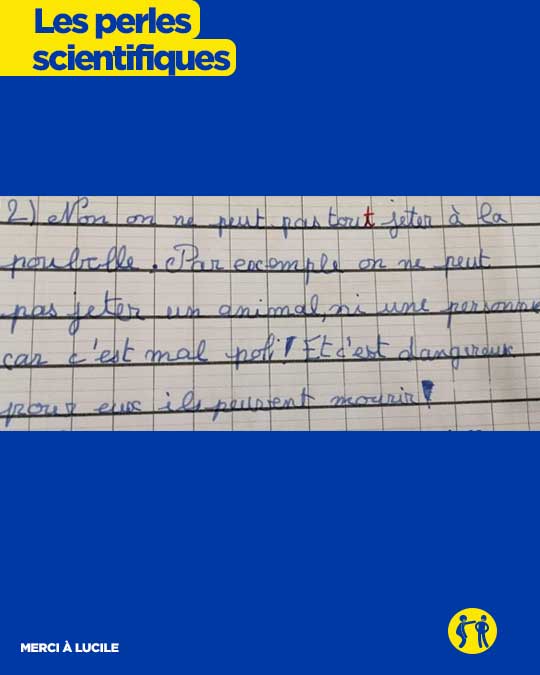 Les perles
scientifiques
2) Non on ne peut pas tout jeter à la
poubelle. Par exemple on ne peut
pas jeter un animal, ni une personne
car c'est mal poli! Et c'est dangireux
pour eux ils peuvent mourir!
MERCI À LUCILE